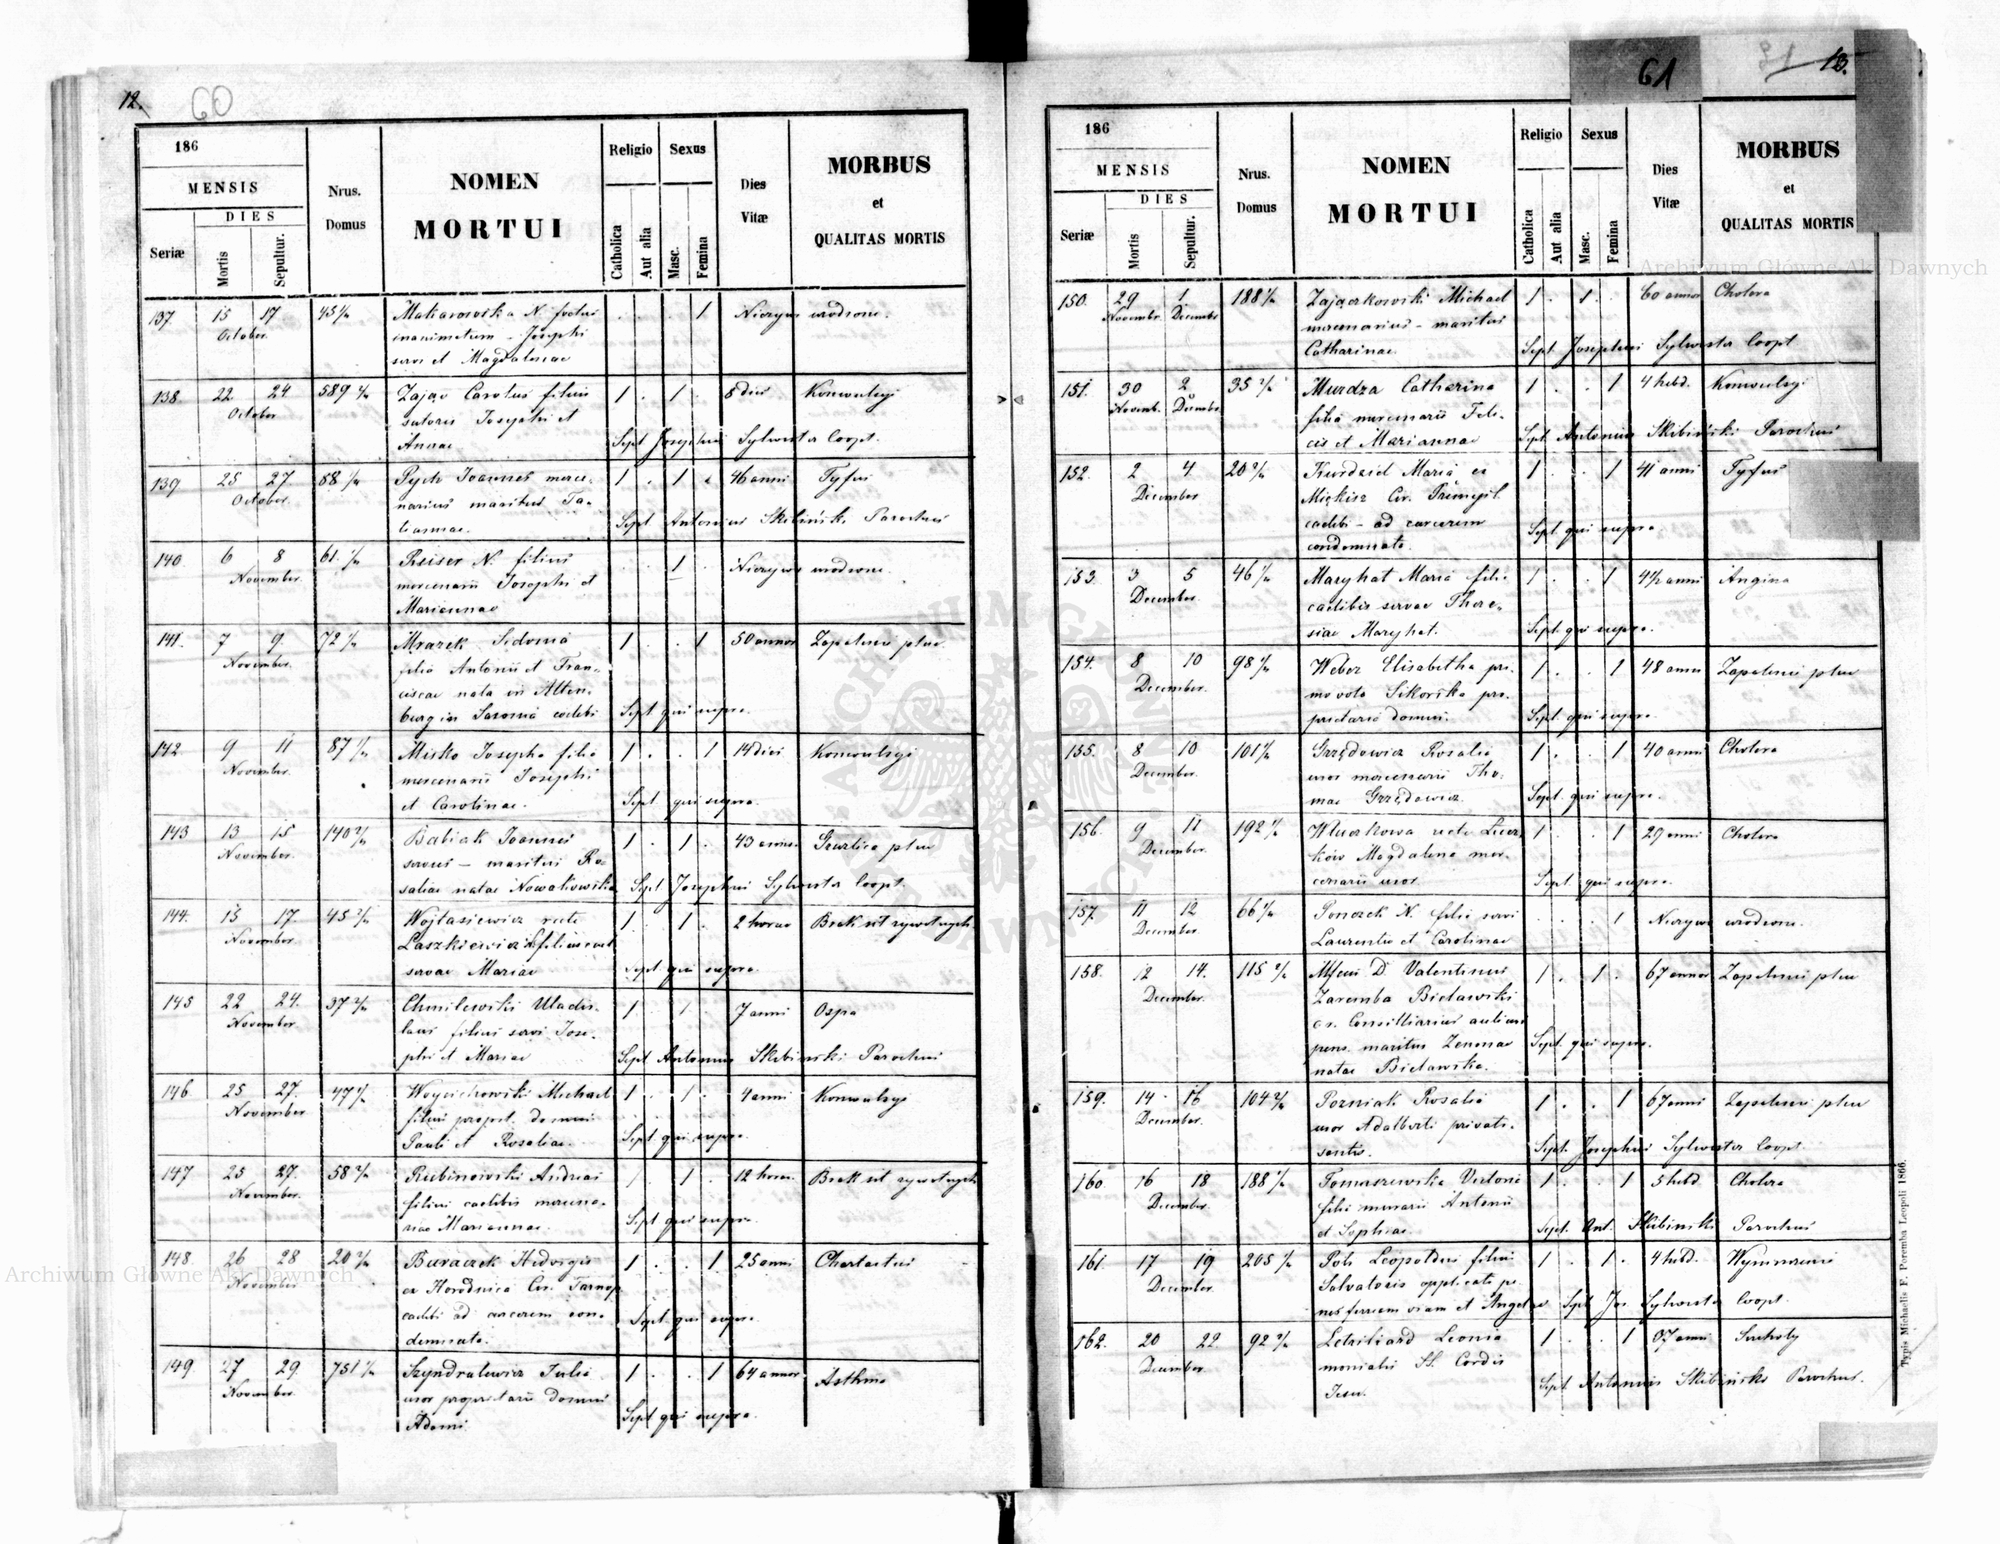 12.
60
186
MENSIS
DIES
Seriæ
Mortis
Sepultur.
Nrus.
Domus
NOMEN
MORTUI
Religio
Sexus
Catholica
Aut alia
Masc.
Femina
Dies
Vitæ
MORBUS
et
QUALITAS MORTIS
137. 15 17 45 1 Nieżywo urodzone.
October
Makarowska N. foetus
inanimatum - Josephi
servi et Magdalenae
138. 22 24 589 1 . 1 . 8 dies Konwulsyi
October
Zając Carolus filius
sutoris Josephi et
Annae
Sept Josephus Sylwester Coopt.
139 25 27 88 1 . 1 . 46 anni Tyfus
October.
Pych Joannes merce-
narius maritus
Sept Antonius Skibiński Parochus
140 6 8 61. 1 Nieżywo urodzone
November.
N. filius
mercenarii Josephi et
Mariannae
141. 7 9 72 1 . . 1 50 annor Zapalenie płuc
November.
Mrazek Sidonia
filia Antonii et Fran-
ciscae nata in Alten-
burg in Saxonia caelebs
Sept qui supra.
142 9 11 87 1 . . 1 14 dies Konwulsyi
November.
Misko Josepha filia
mercenarii Josephi
et Carolinae.
Sept. qui supra.
143 13 15 140 1 . 1 . 43 annor Gruźlica płuc
November.
Babiak Joannes
servus - maritus Ro-
saliae natae Nowakowska
Sept Josephus Sylwester Coopt.
144. 15 17. 45 1 . 1 . 2 horae Brak sił żywotnych
November.
Wojtasiewicz recte
Laszkiewicz filius
servae Mariae
Sept qui supra.
145 22 24. 37 1 . 1 7 anni Ospa
November
Chmilewski Uladis-
laus filius servi Jose-
phi et Mariae
Sept Antonius Skibinski Parochus
146 25 27. 47 1 . 1 . 4 anni Konwulsyi
November
Woyciechowski Michael
filius propriet. domus
Pauli et Rosaliae.
Sept qui supra.
147 25 27. 58 1 . 1 . 12 horae. Brak sił żywotnych
November.
Rubinowski Andreas
filius caelibis mercena-
riae Mariannae.
Sept qui supra.
148. 26 28 20 1 . . 1 25 anni
November.
Buraczek Hedvigis
ex Horodnica Cir. Tarnop
caelebs ad carcerem con-
demnata.
Sept. qui supra.
149 27 29. 751 1 . . 1 64 annor. Asthma
November.
Szyndralewicz Julia
uxor proprietarii domus
Adami.
Sept qui supra.
61
31
13.
186
MENSIS
DIES
Seriæ
Mortis
Sepultur.
Nrus.
Domus
NOMEN
MORTUI
Religio
Sexus
Catholica
Aut alia
Masc.
Femina
Dies
Vitæ
MORBUS
et
QUALITAS MORTIS
150. 29 1. 188 1 . 1 . 60 annor Cholera
Novembr. Decembr
Zajączkowski Michael
mercenarius - maritus
Catharinae
Sept Josephus Sylwester Coopt
151. 30 2 35 1 . . 1 4 hebd. Konwulsyi
Novemb. Decembr
Murdza Catharina
filia mercenarii Feli-
cis et Mariannae
Sept. Antonius Skibiński Parochus
152. 2 4 20 1 . . 1 41 anni Tyfus
December
Kurdziel Maria ex
Cir. Przemyśl.
caelebs - ad carcerem
condemnata.
Sept qui supra
153. 3 5 46 1 . . 1 4½ anni Angina
December.
Maryhat Maria filia
caelibis servae There-
siae Maryhat.
Sept. qui supra.
154. 8 10 98 1 . . 1 48 annor Zapalenie płuc
December.
Weber Elisabetha pri-
mo voto Sikorska pro-
prietaria domus.
Sept. qui supra.
155. 8 10 101 1 . . 1 40 anni Cholera
December.
Grzędowicz Rosalia
uxor mercenarii Tho-
mae Grzędowicz.
Sept. qui supra.
156. 9 11 192 1 . . 1 29 anni Cholera
December.
recte
Magdalena mer-
cenarii uxor
Sept. qui supra.
157. 11 12 66 1 Nieżywo urodzone.
December.
Ponczek N. filia servi
Laurentii et Carolinae
158. 12 14. 115 1 . 1 . 67 annor Zapalenie płuc
December.
D Valentinus
Zaremba Bielawski
Consilliarius aulicus
pens. maritus Zenonae
natae Bielawska.
Sept. qui supra.
159. 14 16 104 1 . . 1 67 anni Zapalenie płuc
December.
Pozniak Rosalia
uxor Adalberti privati-
santis.
Sept. Josephus Sylwester Coopt.
160. 16 18 188 1 . . 1 5 hebd Cholera
December.
Tomaszewska Victoria
filia murarii Antonii
et Sophiae.
Sept. Ant. Skibinski Parochus
161. 17 19 205 1 . 1 . 4 hebd.
December.
Poh Leopoldus filius
Salvatoris applicati pe-
nes ferream viam et Angelae
Sept Jos Sylwester Coopt.
162. 20 22 92 1 . . 1 Suchoty
December.
Leonia
monialis SS. Cordis
Jesu.
Sept. Antonius Skibiński Parochus.
Typis Michaelis F. Poremba Leopoli 1866.
Archiwum Główne Akt Dawnych
Archiwum Główne Akt Dawnych
ARCHIWUM GŁÓWNE AKT DAWNYCH